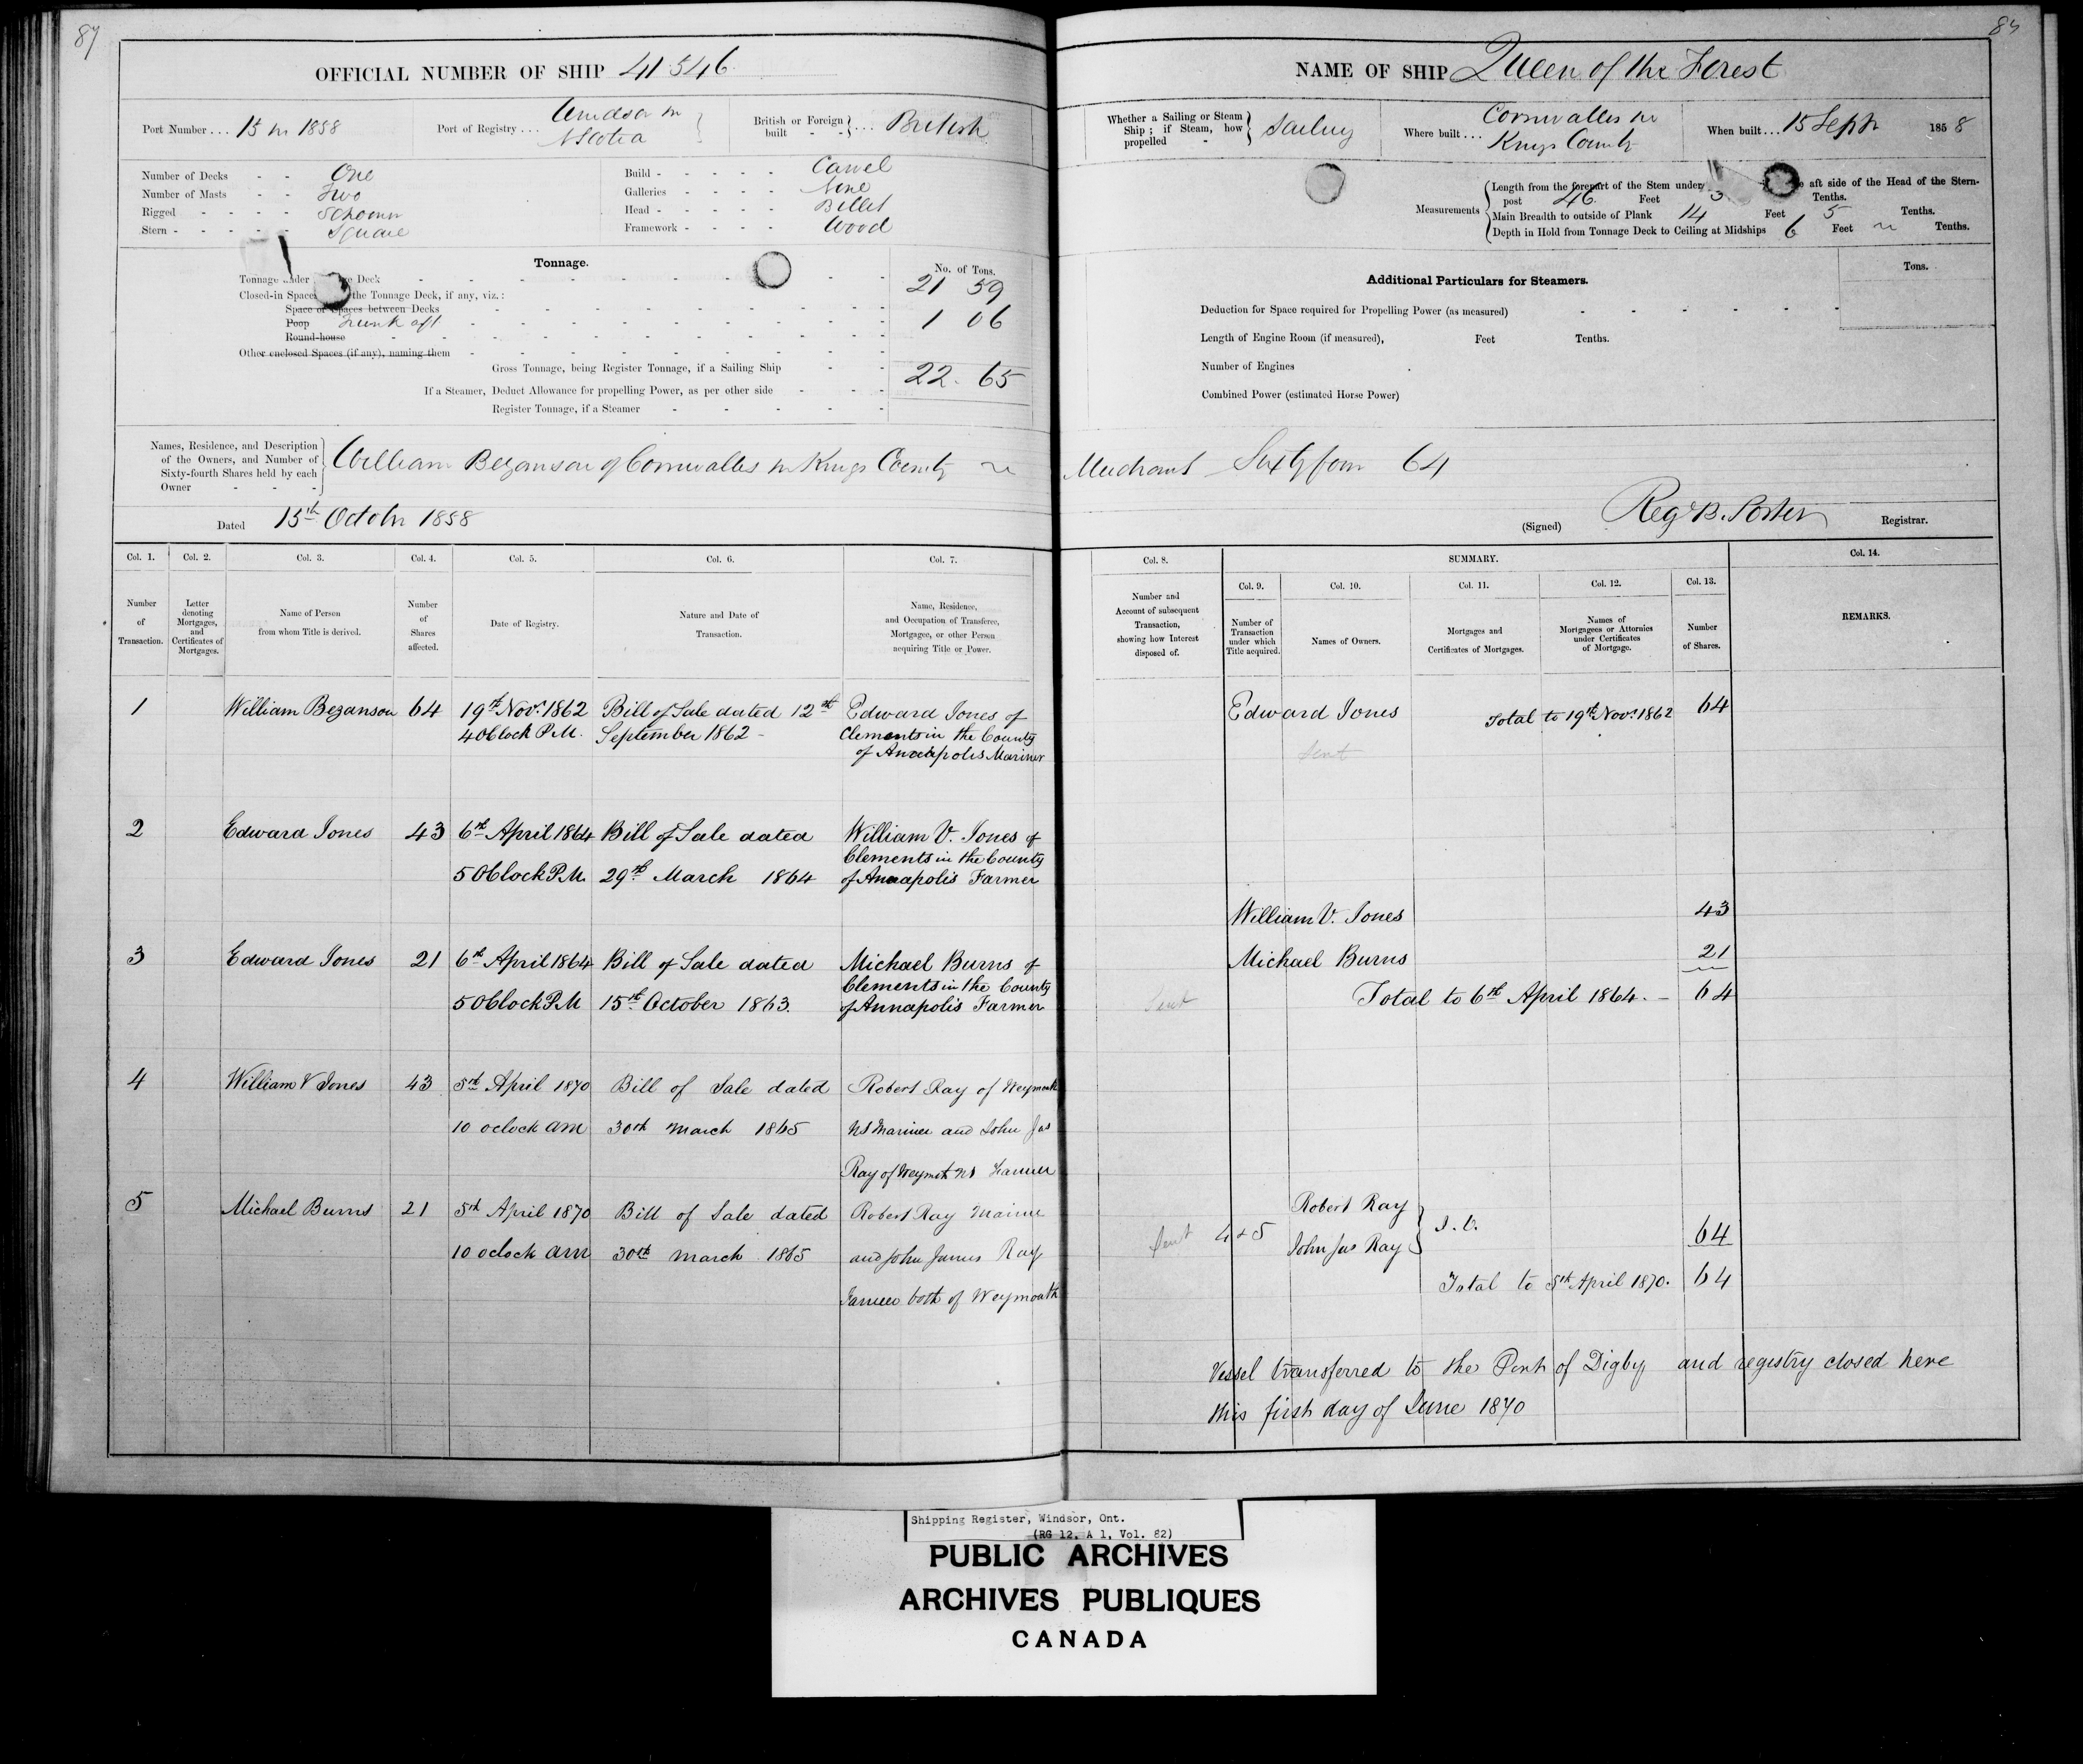 87
OFFICIAL NUMBER OF SHIP 41.546.
Port Number . . . 15 in 1858
Port of Registry . . . Windsor in
N Scotia
British or Foreign built - - . . . British
Number of Decks - - One
Number of Masts - - Two
Rigged - - - - Schooner
Stern - - - - - Square
Build - - - - - Carvel
Galleries - - - - None
Head - - - - - Billet
Framework - - - - Wood
Tonnage.
No. of Tons.
Tonnage Deck 21 59
Closed-in the Tonnage Deck, if any, viz.:
Space or Spaces between Decks
Poop Trunk aft 1 06
Round-house
Other enclosed Spaces (if any), naming them
Gross Tonnage, being Register Tonnage, if a Sailing Ship 22. 65
If a Steamer, Deduct Allowance for propelling Power, as per other side
Register Tonnage, if a Steamer
Names, Residence, and Description
of the Owners, and Number of
Sixty-fourth Shares held by each
Owner - - -
William Bezanson of Cornwallis in Kings County
Dated 15th October 1858
Col. 1. Col. 2. Col. 3. Col. 4. Col. 5. Col. 6. Col. 7.
Number of Transaction.
Letter denoting Mortgages, and Certificates of Mortgages.
Name of Person from whom Title is derived.
Number of Shares affected.
Date of Registry.
Nature and Date of Transaction.
Name, Residence, and Occupation of Transferee, Mortgagee, or other Person acquiring Title or Power.
1 William Bezanson 64 19th Novr. 1862 Bill of Sale dated 12th Edward Jones of
4 OClock P.M. September 1862 - Clements in the County
of Annapolis Mariner
2 Edward Jones 43 6th April 1864 Bill of Sale dated William V. Jones of
Clements in the County
5 OClock P.M. 29th March 1864 of Annapolis Farmer
3 Edward Jones 21 6th April 1864 Bill of Sale dated Michael Burns of
Clements in the County
5 OClock P.M 15th October 1863. of Annapolis Farmer
4 William V Jones 43 5th April 1870 Bill of Sale dated Robert Ray of Weymouth
10 oclock am 30th March 1865 NS Mariner and John Jas
Ray of Weymoth NS Farmer
5 Michael Burns 21 5th April 1870 Bill of Sale dated Robert Ray Marine
10 oclock am 30th March 1865 and John James Ray
Farmer both of Weymouth
NAME OF SHIP Queen of the Forest
Whether a Sailing or Steam
Ship; if Steam, how
propelled -
Sailing
Where built . . . Cornwallis in
Kings County
When built . . . 15 Sept 1858
Measurements
Length from the forepart of the Stem under aft side of the Head of the Stern-
post 46 Feet Tenths.
Main Breadth to outside of Plank 14 Feet 5 Tenths.
Depth in Hold from Tonnage Deck to Ceiling at Midships 6 Feet Tenths.
Additional Particulars for Steamers.
Tons.
Deduction for Space required for Propelling Power (as measured)
Length of Engine Room (if measured), Feet Tenths.
Number of Engines
Combined Power (estimated Horse Power)
Merchant Sixty four 64
(Signed) Reg B. Porter Registrar.
Col. 8. SUMMARY. Col. 14.
Col. 9. Col. 10. Col. 11. Col. 12. Col. 13.
Number and Account of subsequent Transaction, showing how Interest disposed of.
Number of Transaction under which Title acquired.
Names of Owners.
Mortgages and Certificates of Mortgages.
Names of Mortgagees or Attornies under Certificates of Mortgage.
Number of Shares.
REMARKS.
Edward Jones Total to 19th Novr. 1862 64
Sent
William V. Jones 43
Michael Burns 21
Sent Total to 6th April 1864. - 64
Robert Ray
Sent 4 & 5 J. O. 64
John Jas Ray
Total to 5th April 1870. 64
Vessel transferred to the Port of Digby and registry closed here
this first day of June 1870
Shipping Register, Windsor, Ont.
(RG 12, A 1, Vol. 82)
PUBLIC ARCHIVES
ARCHIVES PUBLIQUES
CANADA